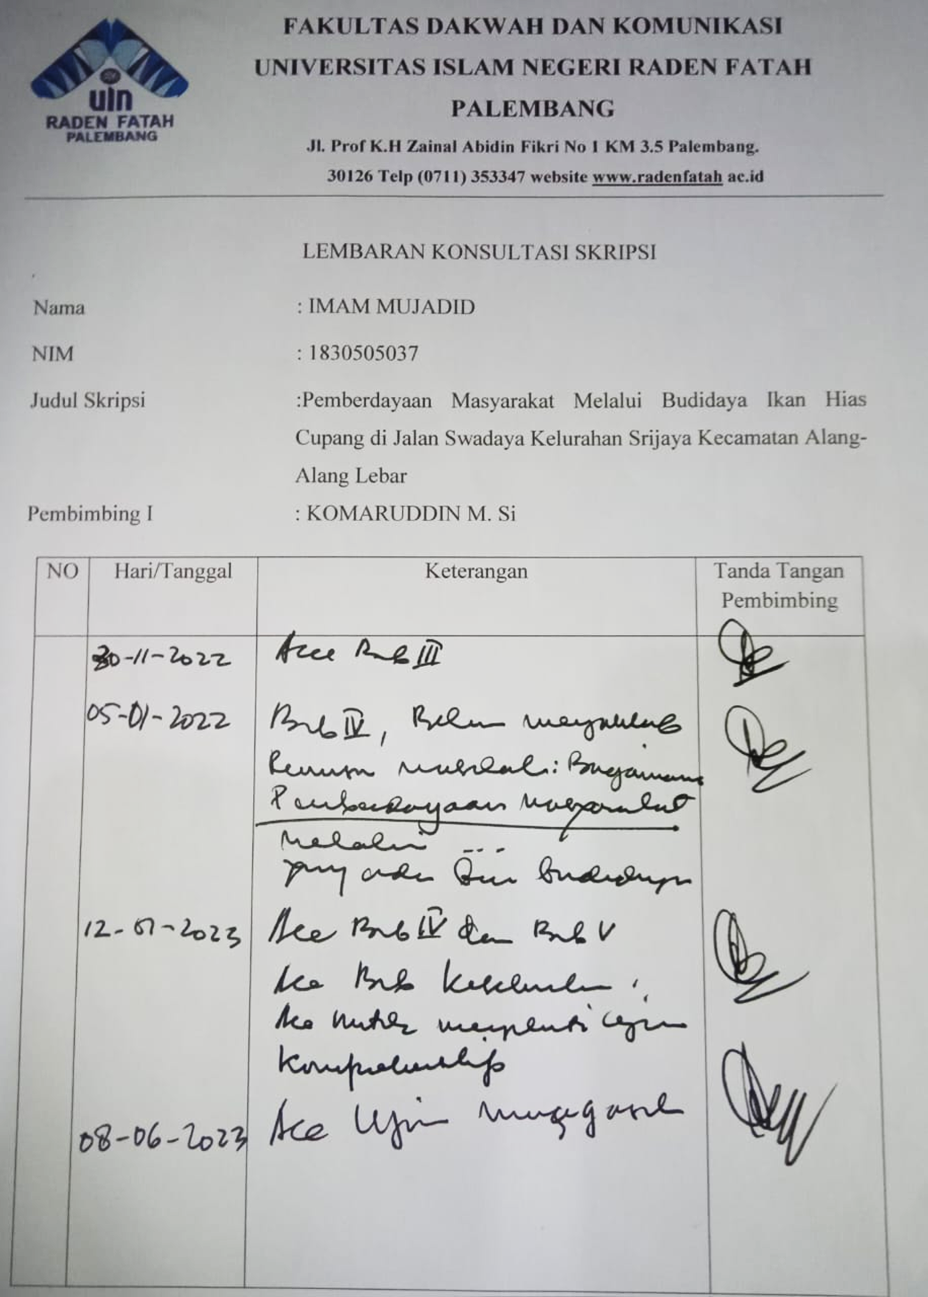 uin
RADEN FATAH
PALEMBANG
FAKULTAS DAKWAH DAN KOMUNIKASI
UNIVERSITAS ISLAM NEGERI RADEN FATAH
PALEMBANG
Jl. Prof K.H Zainal Abidin Fikri No 1 KM 3.5 Palembang.
30126 Telp (0711) 353347 website www.radenfatah ac.id
LEMBARAN KONSULTASI SKRIPSI
Nama : IMAM MUJADID
NIM : 1830505037
Judul Skripsi :Pemberdayaan Masyarakat Melalui Budidaya Ikan Hias
Cupang di Jalan Swadaya Kelurahan Srijaya Kecamatan Alang-
Alang Lebar
Pembimbing I : KOMARUDDIN M. Si
NO Hari/Tanggal Keterangan Tanda Tangan
Pembimbing
30-11-2022 Acc Bab III
05-01-2022 Bab IV, Belum menjawab
Rumusan masalah: Bagaimana
Pemberdayaan masyarakat
melalui ...
yang ada budidaya
12-01-2023 Acc Bab IV dan Bab V
Acc Bab keseluruhan
Acc untuk mengikuti ujian
komprehensif
08-06-2023 Acc Ujian munaqasah